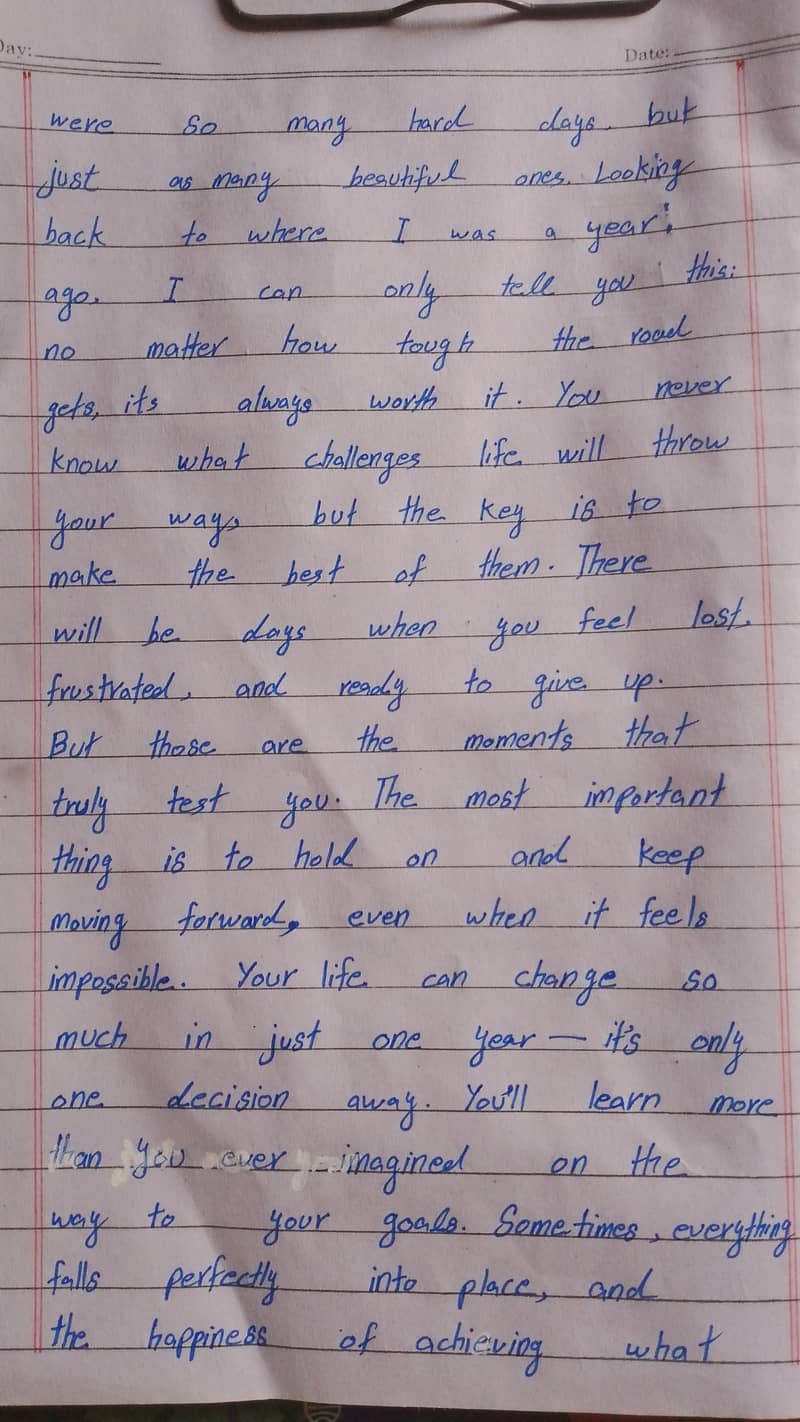 Day:
Date:
were so many hard days. but
just as many beautiful ones. Looking
back to where I was a year
ago. I can only tell you this:
no matter how tough the road
gets, its always worth it. You never
know what challenges life will throw
your way, but the key is to
make the best of them. There
will be days when you feel lost.
frustrated, and ready to give up.
But those are the moments that
truly test you. The most important
thing is to hold on and keep
moving forward, even when it feels
impossible. Your life can change so
much in just one year — it's only
one decision away. You'll learn more
than you ever imagined on the
way to your goals. Sometimes, everything
falls perfectly into place, and
the happiness of achieving what